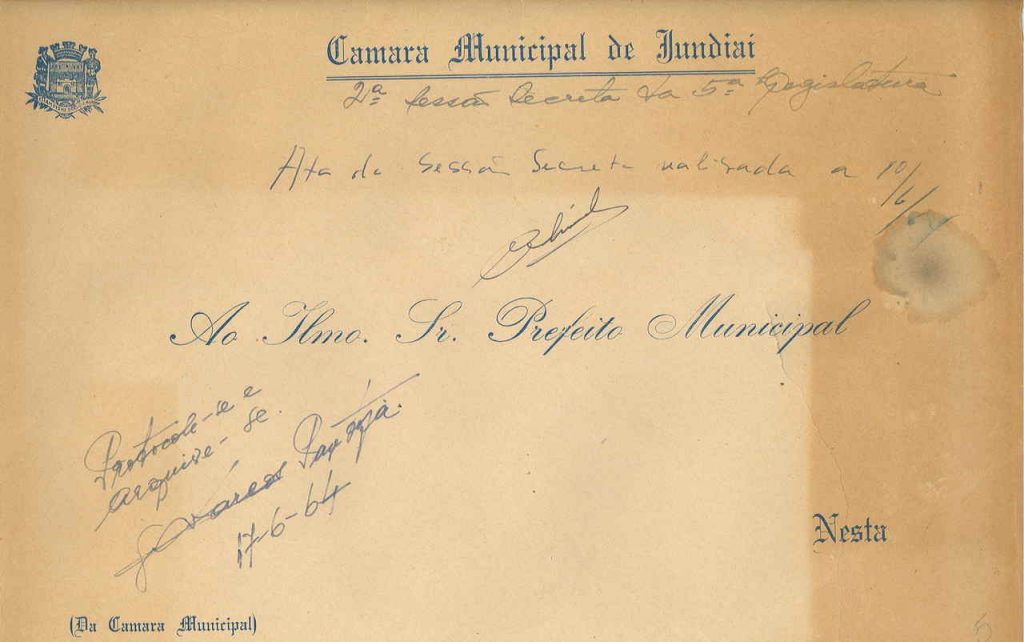 Camara Municipal de Jundiai
2ª Sessão Secreta da 5ª Legislatura
Ata da Sessão Secreta realizada a 10/6/64
Ao Ilmo. Sr. Prefeito Municipal
Protocole-se e
arquive-se.
Pantoja.
17-6-64
Nesta
(Da Camara Municipal)